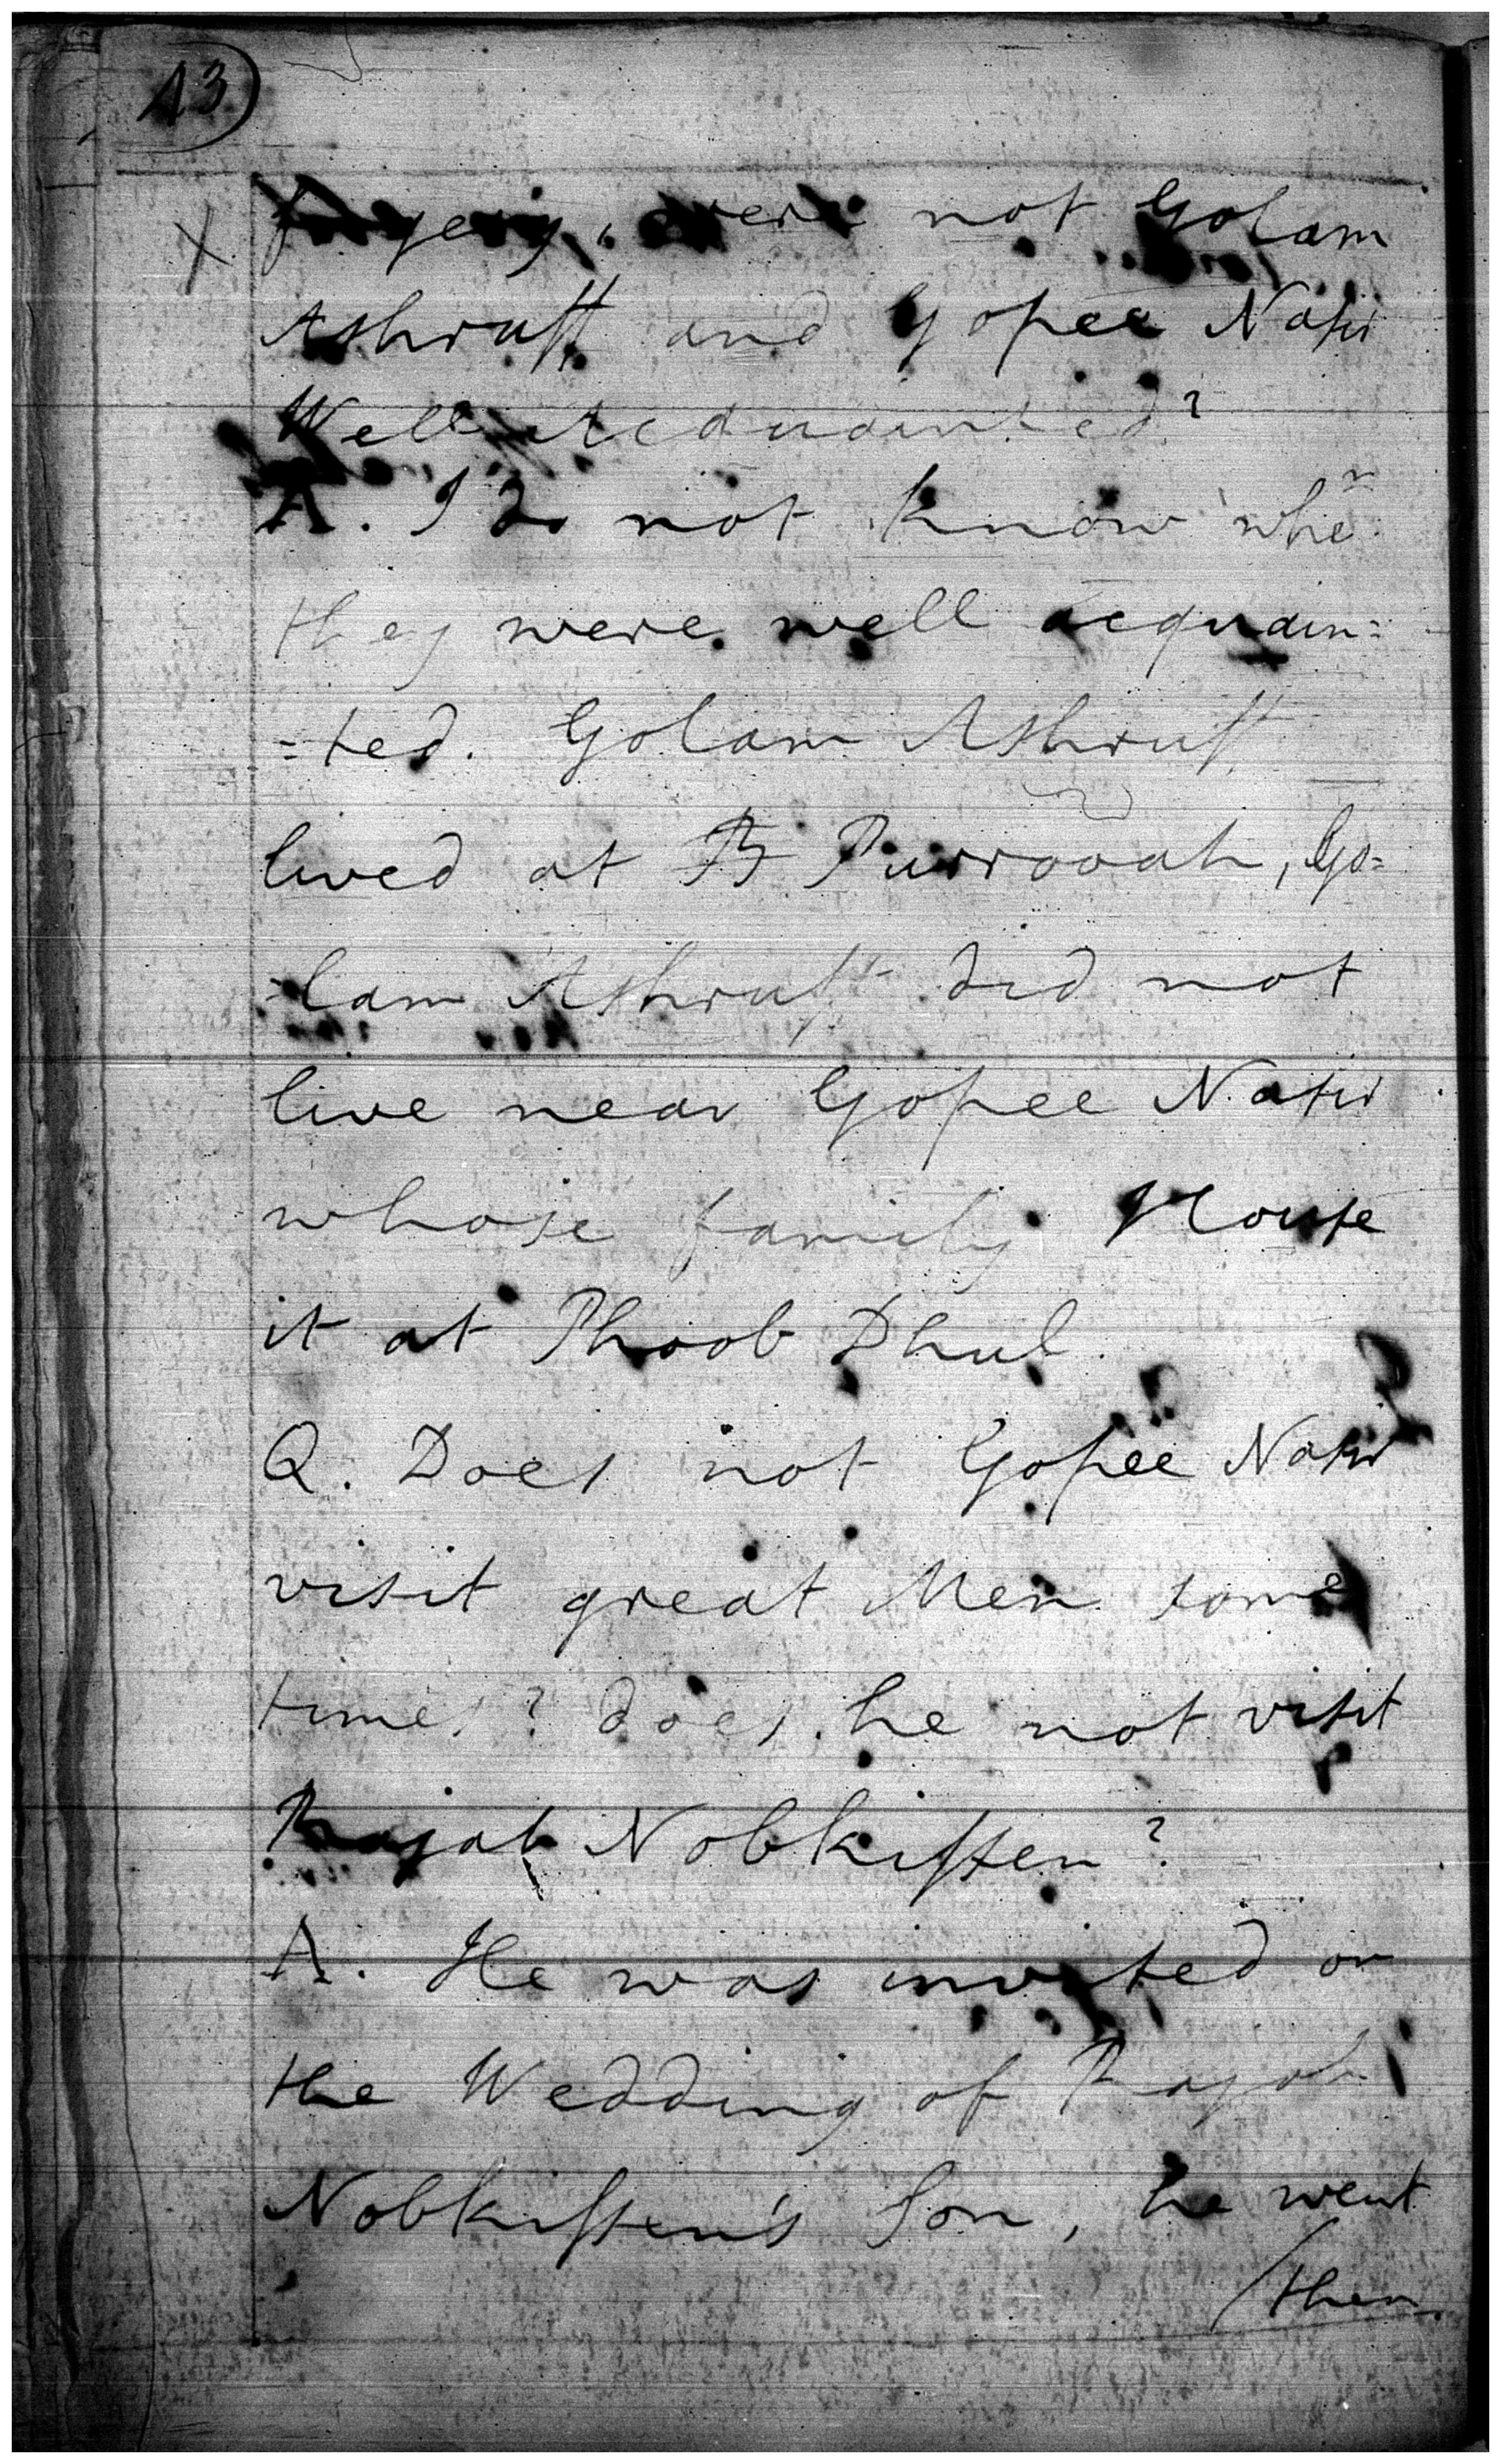 43
X forgery, were not Golam
Ashruff and Gopee Nasir
Well Acquainted?
A. I do not know whe.r
they were well acquain=
=ted. Golam Ashruff
lived at B Purrooah, Go=
=lam Ashruff did not
live near Gopee Nasir
whose family House
it at Phoob Dhul.
Q. Does not Gopee Nasir
visit great Men some
times? does he not visit
Rajah Nobkissen?
A. He was invited on
the Wedding of Rajah
Nobkissen's Son, he went
/then